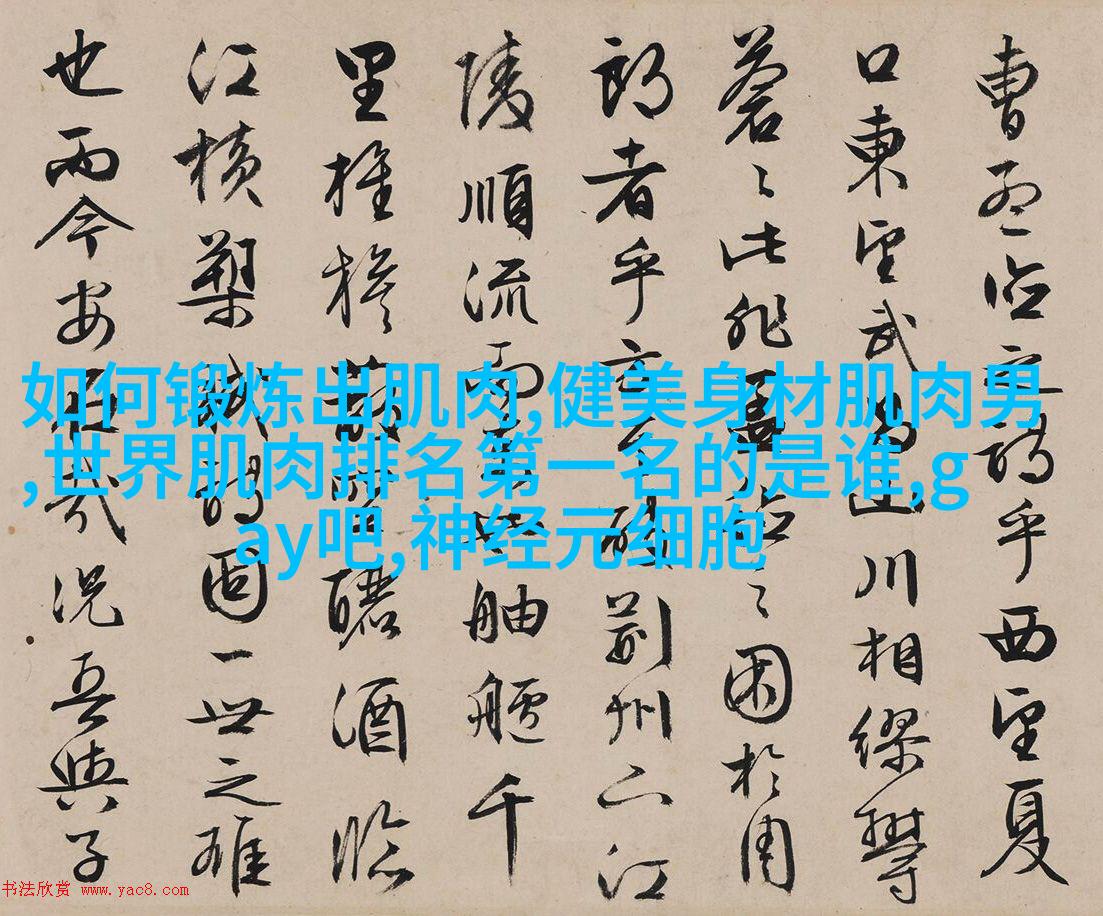 曹孟德之詩乎西望夏
口東望武昌山川相繆鬱
蒼〻此非孟德之困於周
郎者乎方其破荊州下江
陵順流而東也舳艫千
里旌旗蔽空釃酒臨
江橫槊賦詩固一世之雄
也而今安在哉況吾與子
如何锻炼出肌肉,健美身材肌肉男
,世界肌肉排名第一名的是谁,g
ay吧,神经元细胞
书法欣赏 www.yac8.com